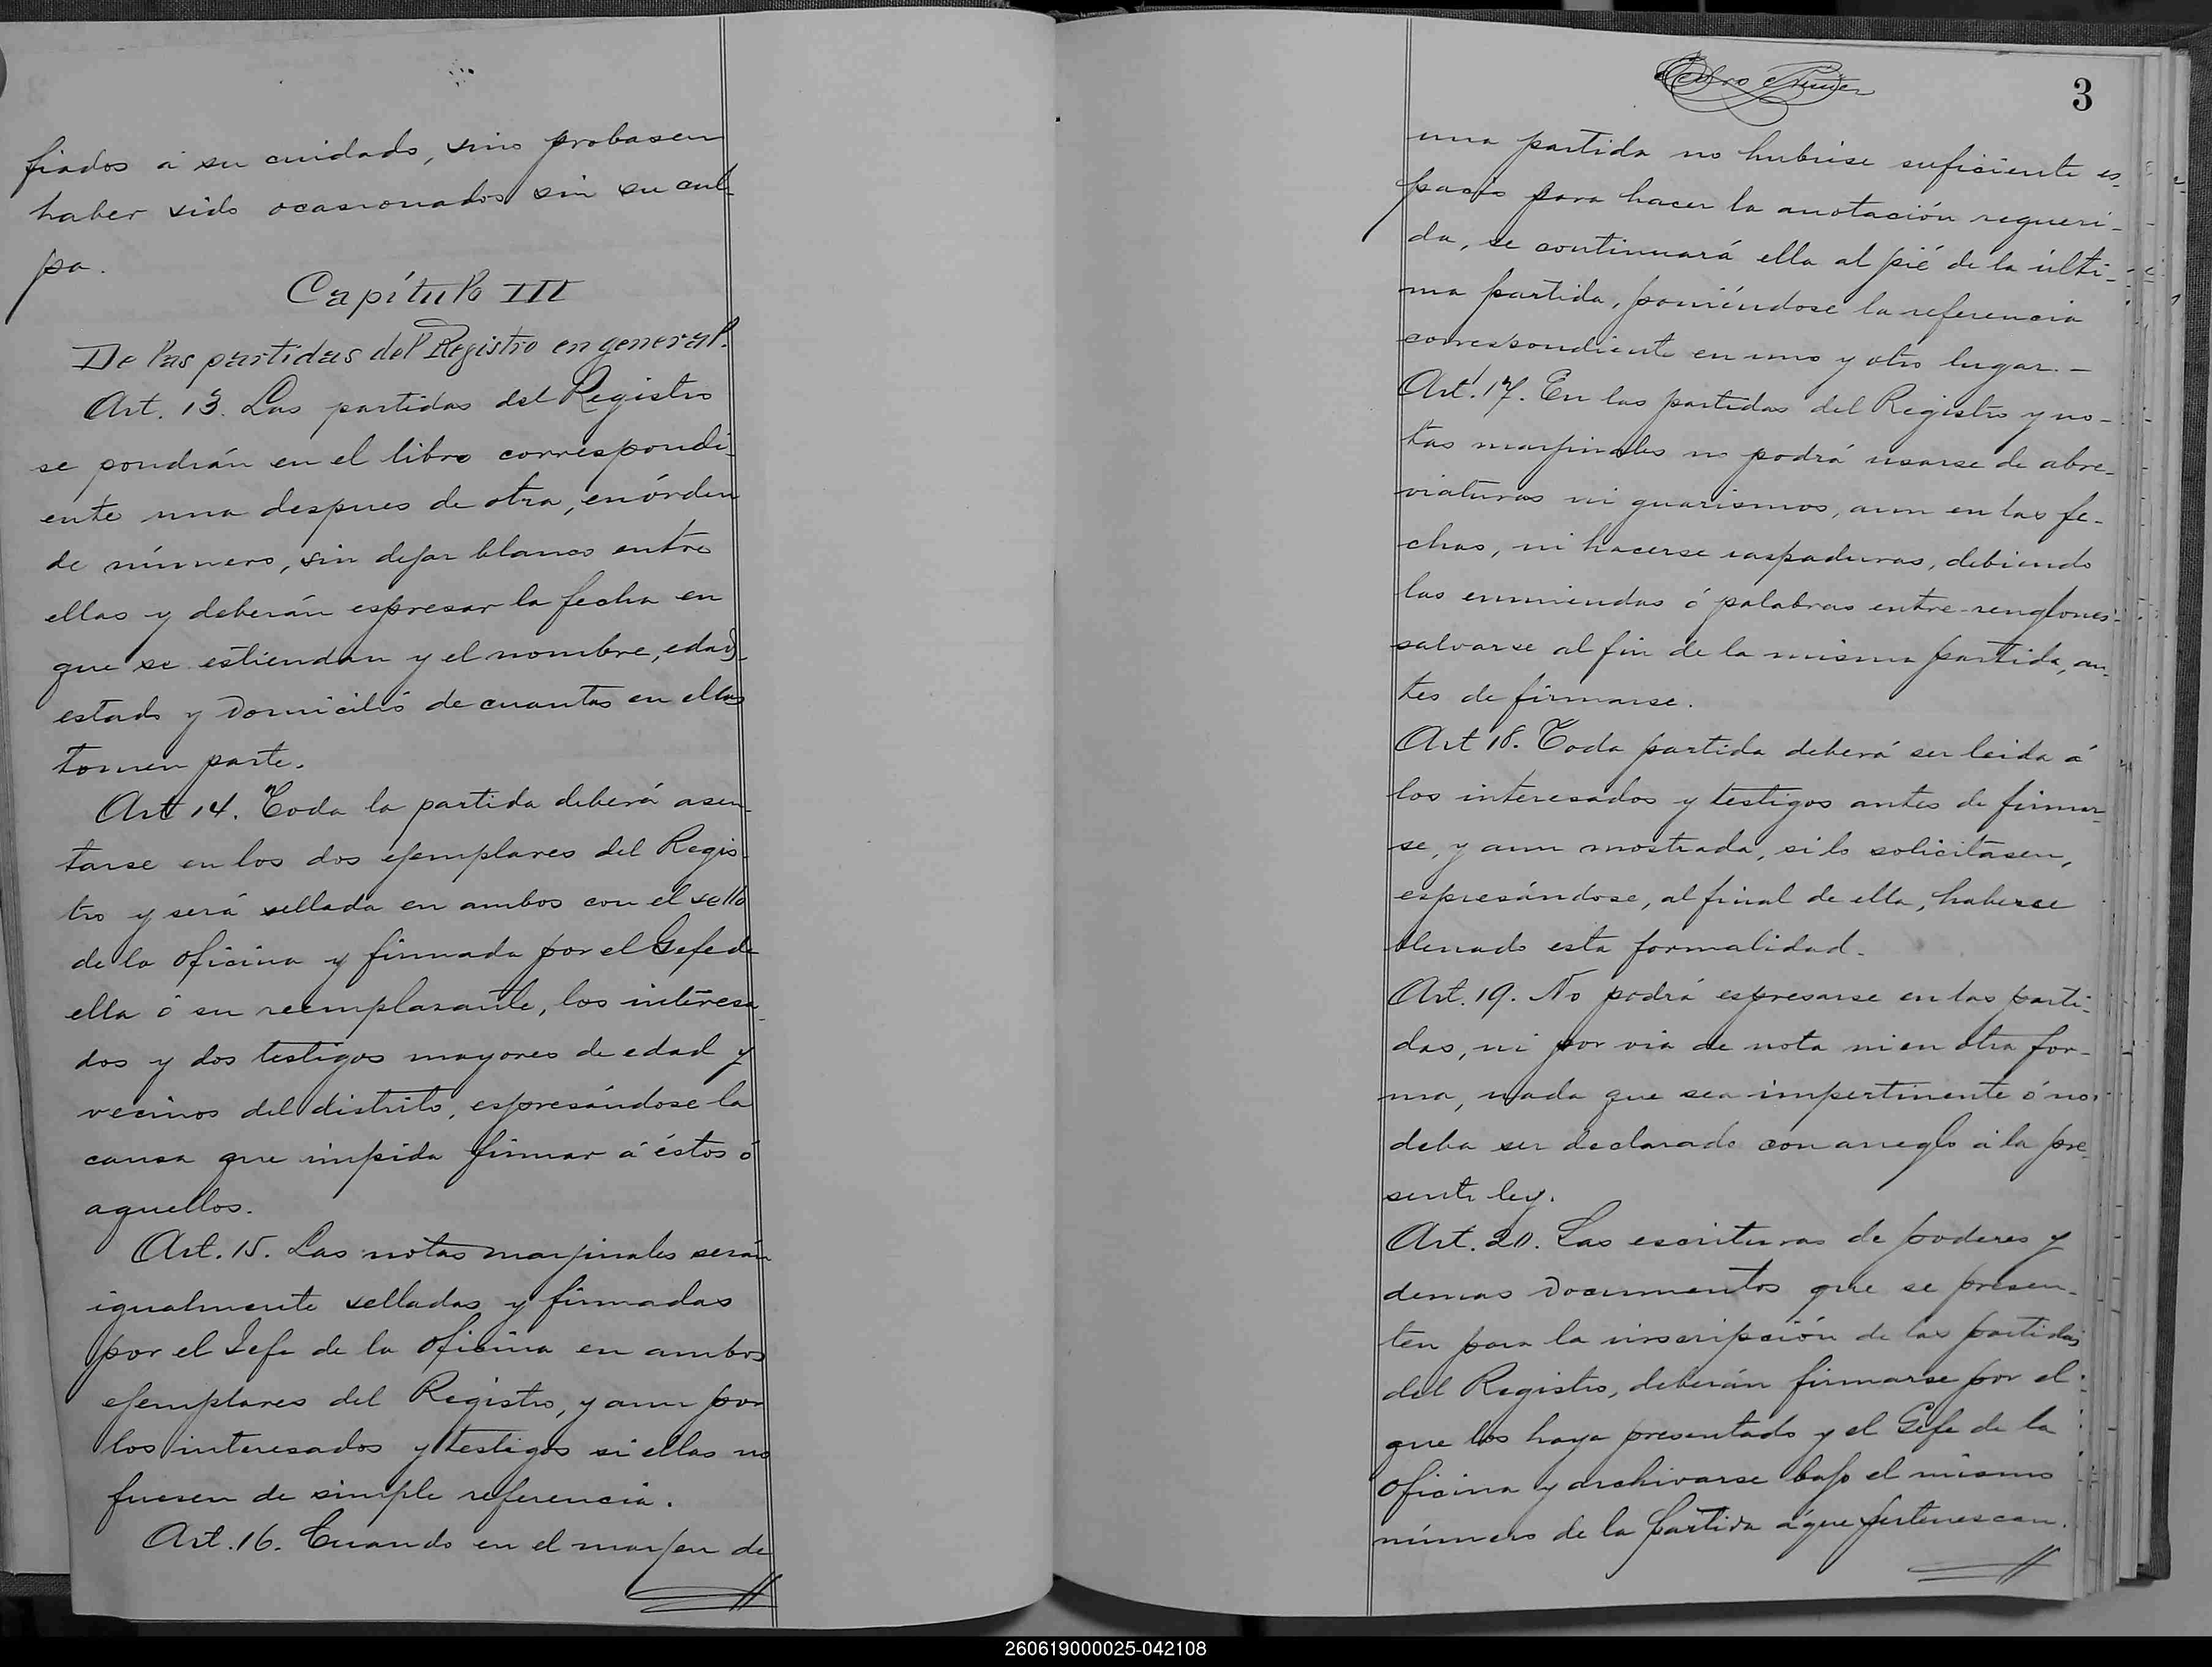 fiados á su cuidado, sino probasen
haber sido ocasionados sin su cul-
pa.
Capítulo III
De las partidas del Registro en general.
Art. 13. Las partidas del Registro
se pondrán en el libro correspondi-
ente una despues de otra, en órden
de número, sin dejar blanco entre
ellas y deberán espresar la fecha en
que se estiendan y el nombre, edad,
estado y domicilio de cuantos en ellas
tomen parte.
Art 14. Toda la partida deberá asen-
tarse en los dos ejemplares del Regis-
tro y será sellada en ambos con el sello
de la oficina y firmada por el Gefe de
ella ó su reemplasante, los interesa-
dos y dos testigos mayores de edad y
vecinos del distrito, espresándose la
causa que impida firmar á éstos ó
aquellos.
Art. 15. Las notas marjinales serán
igualmente selladas y firmadas
por el Gefe de la oficina en ambos
ejemplares del Registro, y aun por
los interesados y testigos si ellas no
fuesen de simple referencia.
Art. 16. Cuando en el marjen de
Pedro
3
una partida no hubiese suficiente es-
pacio para hacer la anotación requeri-
da, se continuará ella al pié de la últi-
ma partida, poniéndose la referencia
correspondiente en uno y otro lugar.-
Art. 17. En las partidas del Registro y no-
tas marjinales no podrá usarse de abre-
viaturas ni guarismos, aun en las fe-
chas, ni hacerse raspaduras, debiendo
las enmiendas ó palabras entre-renglones
salvarse al fin de la misma partida, an-
tes de firmarse.
Art 18. Toda partida deberá ser leida á
los interesados y testigos antes de firmar-
se, y aun mostrada, si lo solicitasen,
espresándose, al final de ella, haberse
llenado esta formalidad.
Art. 19. No podrá espresarse en las parti-
das, ni por via de nota ni en otra for-
ma, nada que sea impertinente ó no
deba ser declarado con arreglo á la pre-
sente ley.
Art. 20. Las escrituras de poderes y
demas documentos que se presen-
ten para la inscripción de las partidas
del Registro, deberán firmarse por el
que los haya presentado y el Gefe de la
oficina y archivarse bajo el mismo
número de la partida á que pertenescan.
260619000025-042108